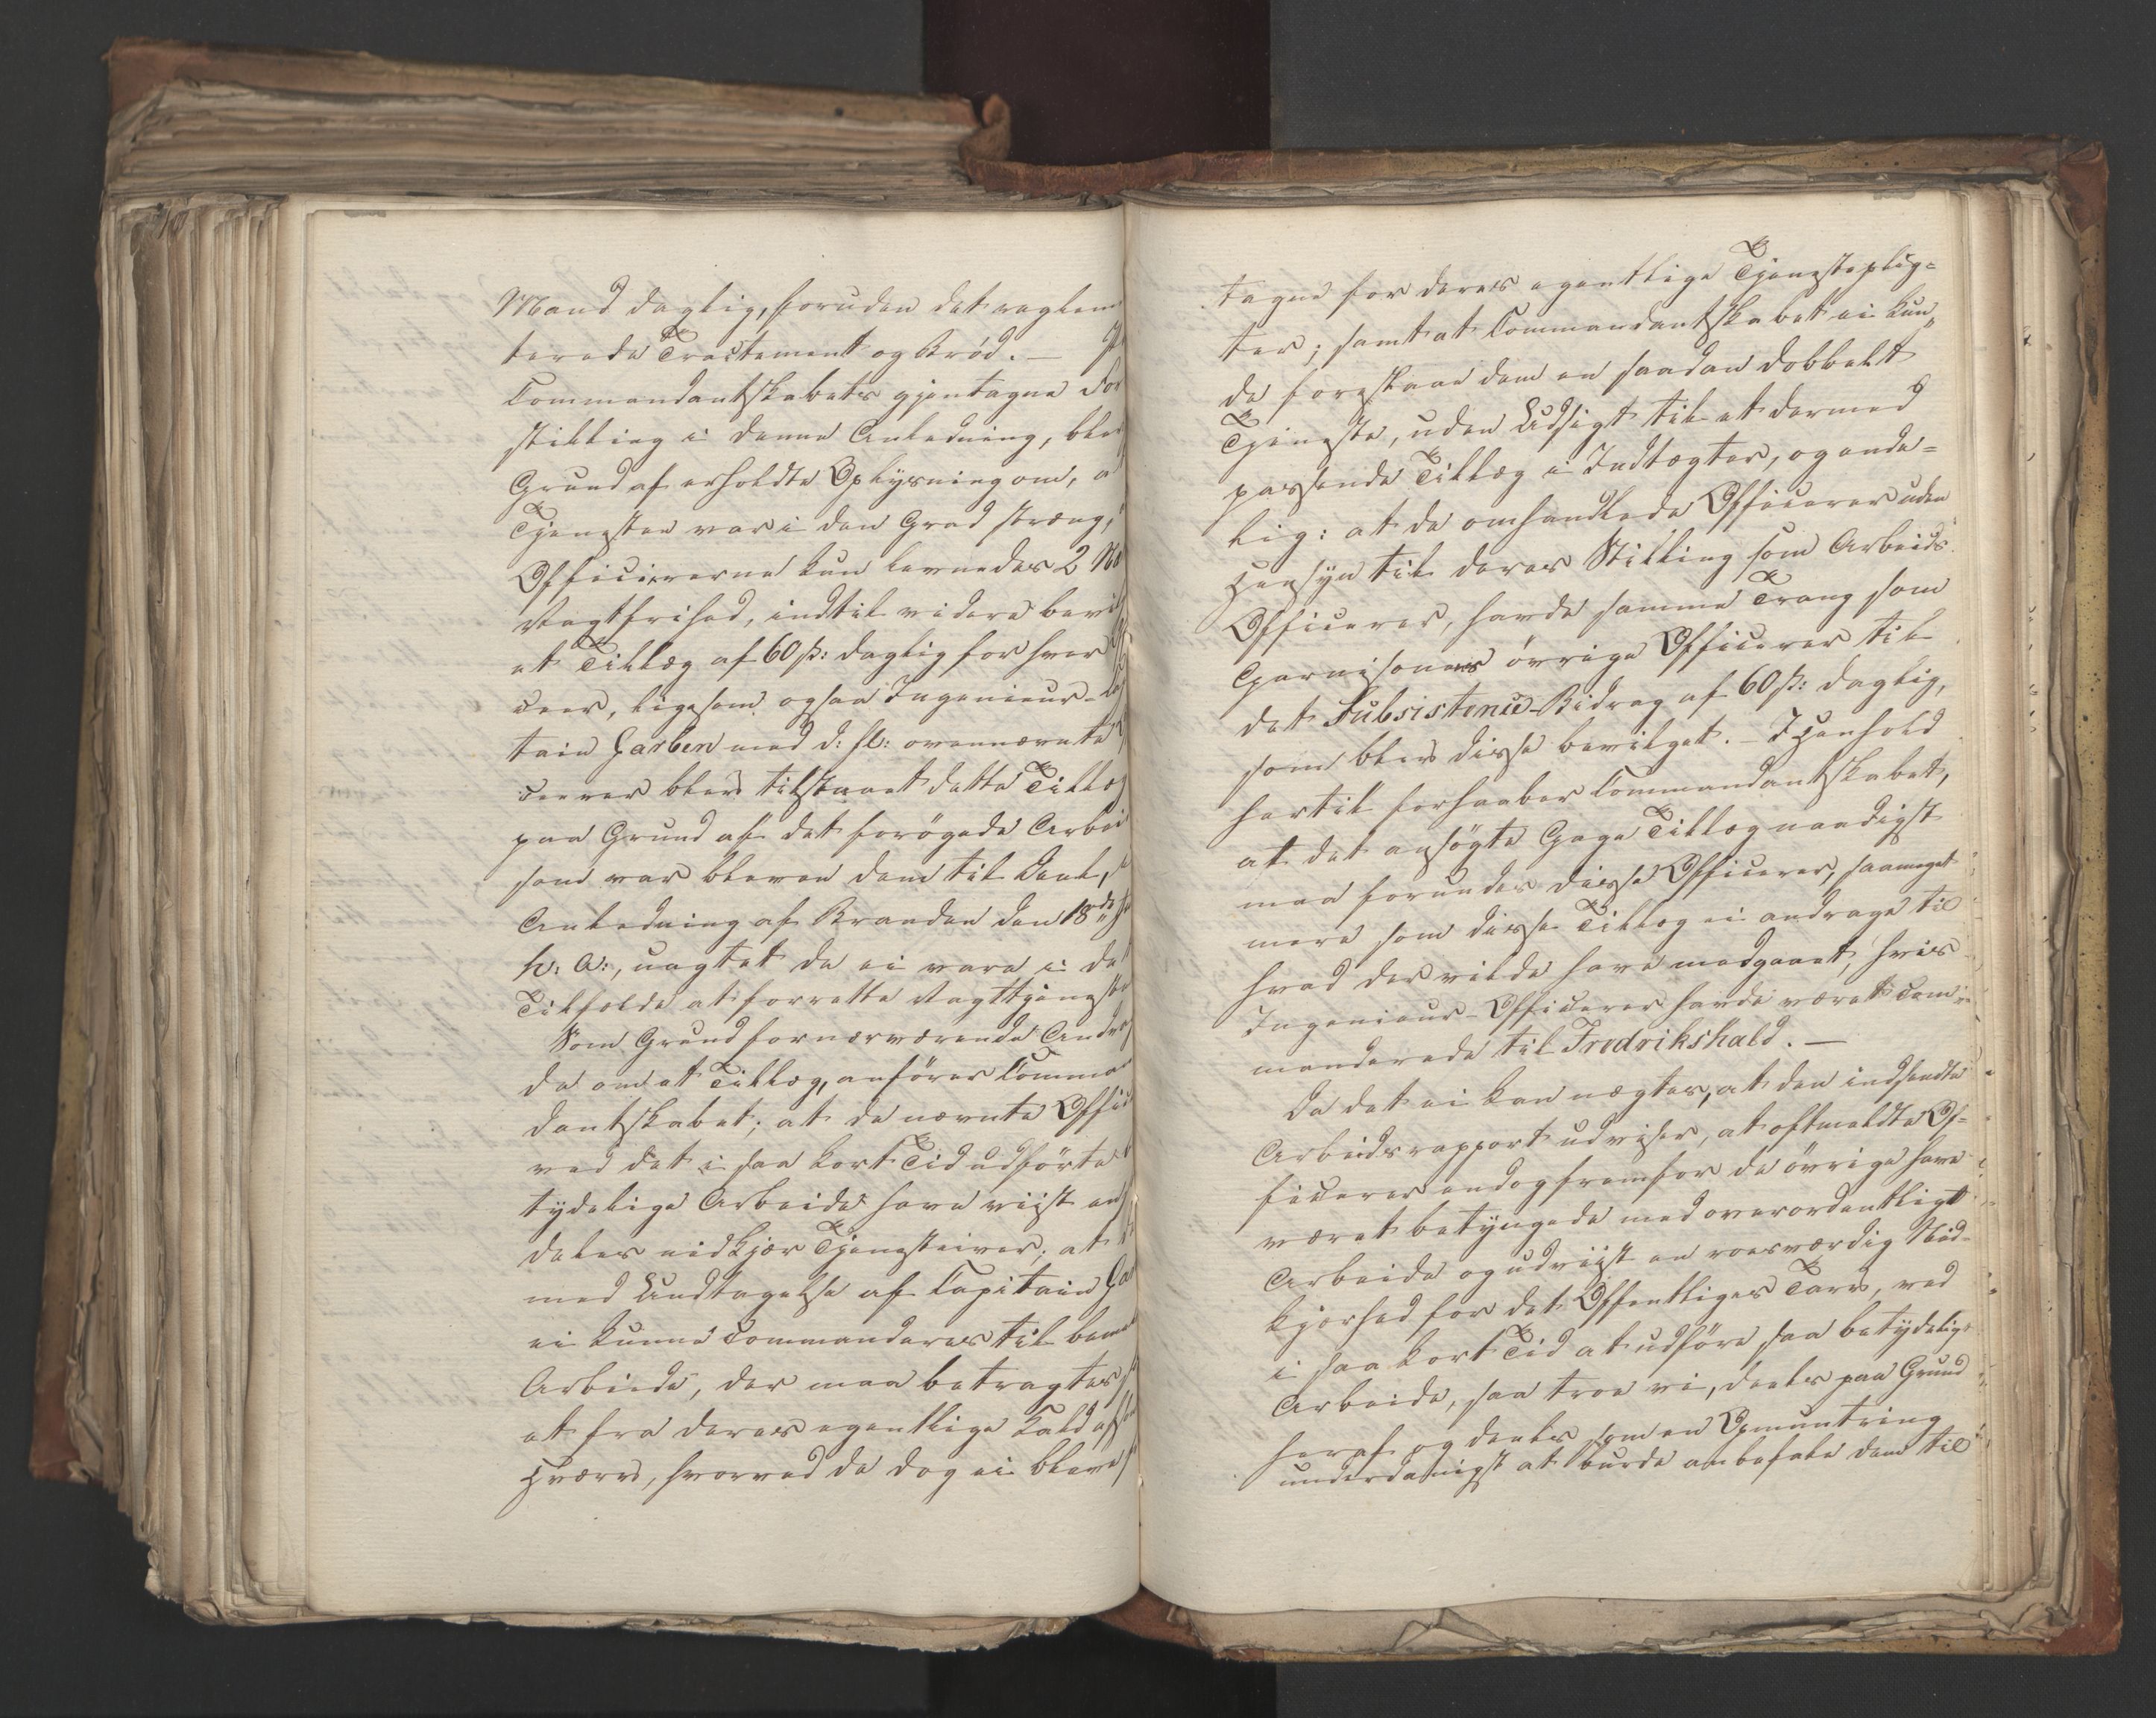 Mand daglig, foruden det reglem
terede Tractement og Brød. —
Commandantskabets gjentagne For
stilling i denne Anledning, blev
Grund af erholdte Oplysning om, a
Tjenesten var i den Grad streng,
Officererne kun levnedes 2 
Vagtfrihed, indtil videre bevil
et Tillæg af 60 ß: daglig for hver
ceer, ligesom ogsaa Ingenieur-Cap
tain Garben med d: fl: ovennævnte
ceerer blev tilstaaet dette Tillæg
paa Grund af det forøgede Arbei
som var bleven dem til Deel,
Anledning af Branden den 18de
h: A:, uagtet de ei vare i det
Tilfælde at forrette Vagttjeneste
Som Grund for nærværende Andra
de om et Tillæg, anfører Comman
dantskabet; at de nævnte Offic
ved det i saa kort Tid udførte
tydelige Arbeide have viist en
deles nidkjær Tjenesteiver; at
med Undtagelse af Capitain Gar
ei kunne commanderes til bem
Arbeide, der maa betragtes
et fra deres egentlige Kald af
Hverv, hvorved de dog ei bleve
tagne for deres egentlige Tjenesteplig=
ter; samt at Commandantskabet ei kun„
de foreslaae dem en saadan dobbelt
Tjeneste, uden Udsigt til et dermed
passende Tillæg i Indtægter, og ende=
lig: at de omhandlede Officerer uden
Hensyn til deres Stilling som Arbeids
Officerer, havde samme Trang som
Garnisonens øvrige Officerer til
det Subsistence-Bidrag af 60 ß: daglig,
som blev disse bevilget. — I Henhold
hertil forhaaber Commandantskabet,
at det ansøgte Gage Tillæg naadigst
maa forundes disse Officerer, saameget
mere som disse Tillæg ei andrage til
hvad der vilde have medgaaet, hvis
Ingenieur-Officerer havde været com„
manderede til Fredrikshald. —
Da det ei kan nægtes, at den indsendte
Arbeidsrapport udviser, at oftmeldte Of=
ficerer endog fremfor de øvrige have
været betyngede med overordentligt
Arbeide og udviist en roesværdig Nid=
kjerhed for det Offentliges Tarv, ved
i saa kort Tid at udføre saa betydelige
Arbeide, saa troe vi, deels paa Grund
heraf og deels som en Opmuntring
underdanigst at burde anbefale dem til